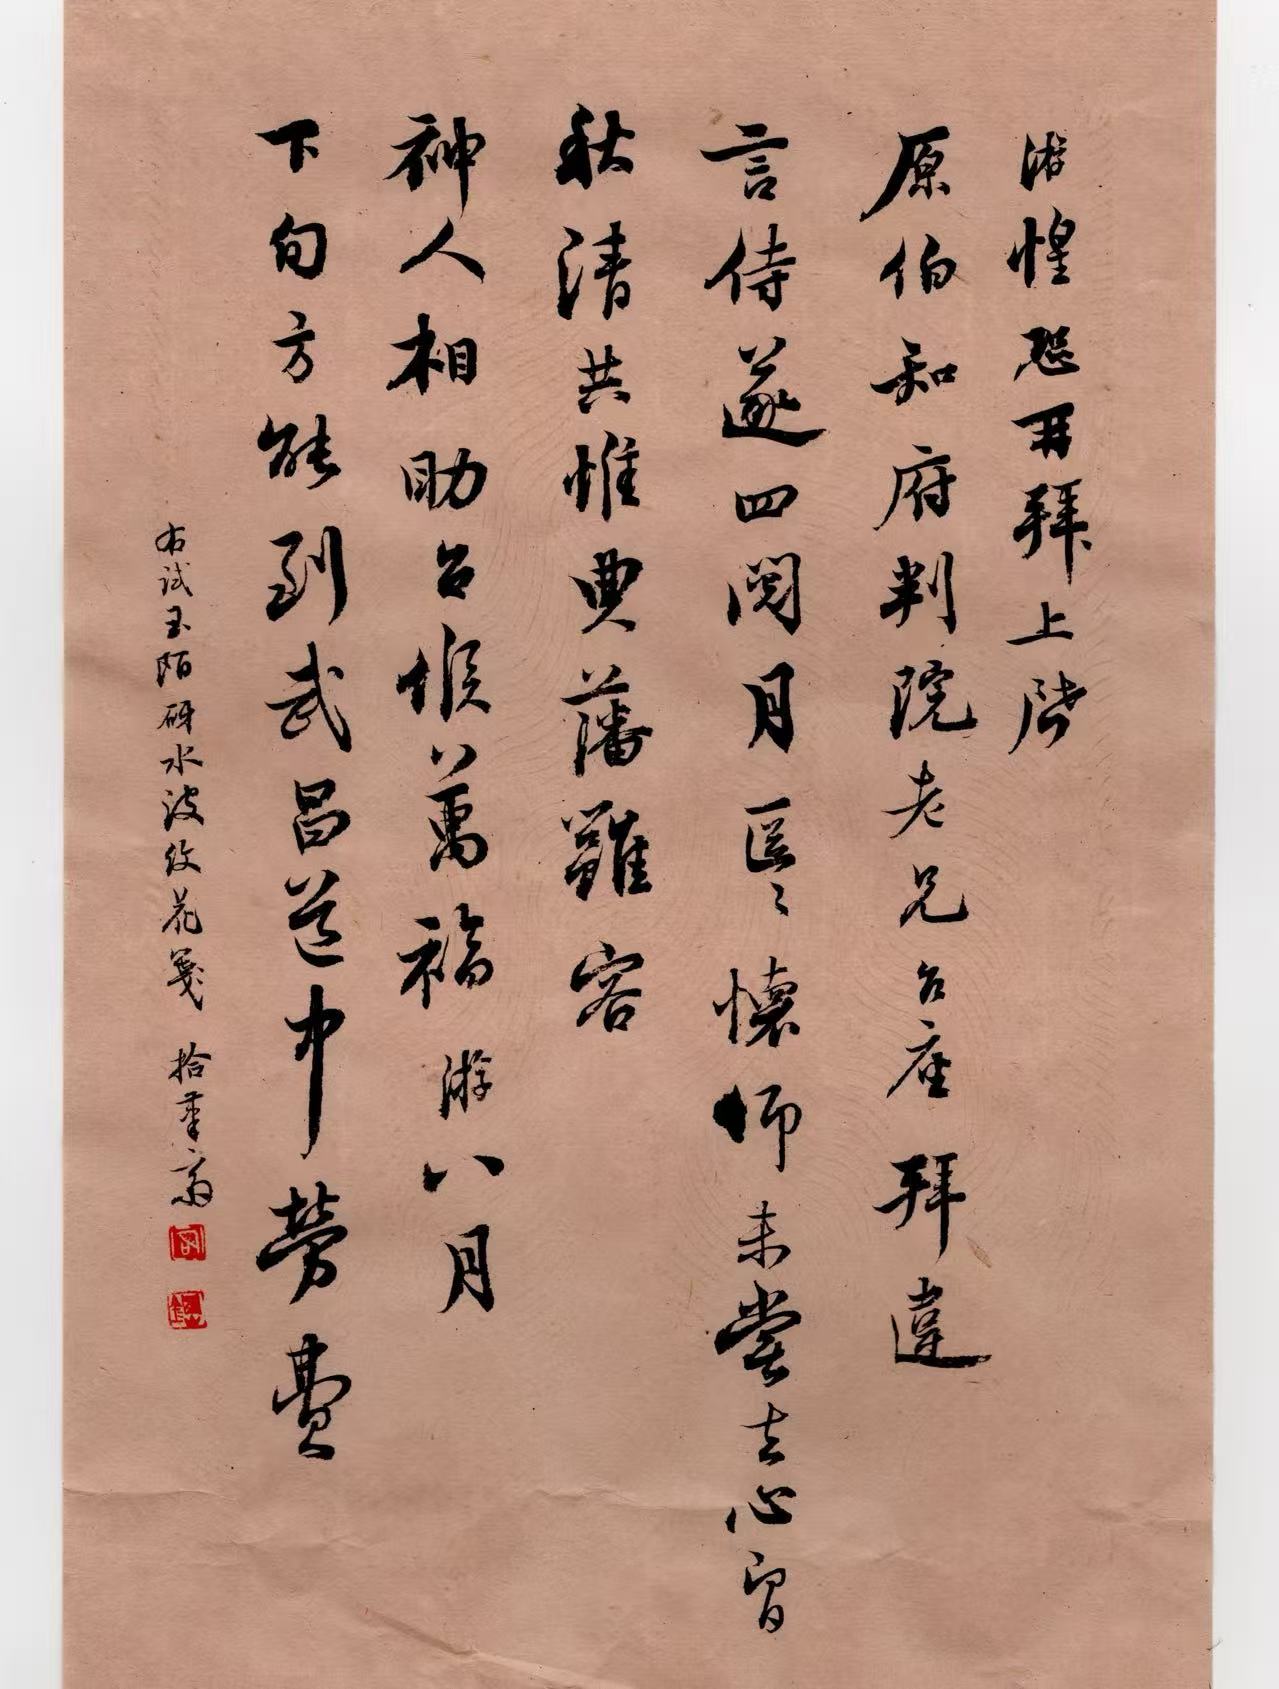 游惶恐再拜上啓
原伯知府判院老兄台座拜違
言侍遂四閱月區〻懷仰未嘗去心曾
秋清共惟典藩雖容
神人相助台候萬福游八月
下旬方能到武昌道中勞費
右試玉陌砑水波纹花箋 拾筆齋